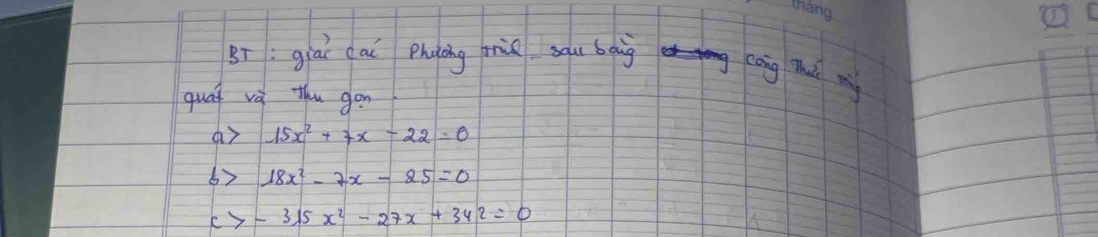 tháng
BT : giải các phương trình sau bằng công thức tổng
quát và thu gọn.
a> 15x² + 7x - 22 = 0
b> 18x² - 7x - 25 = 0
c> - 315x² - 27x + 342 = 0